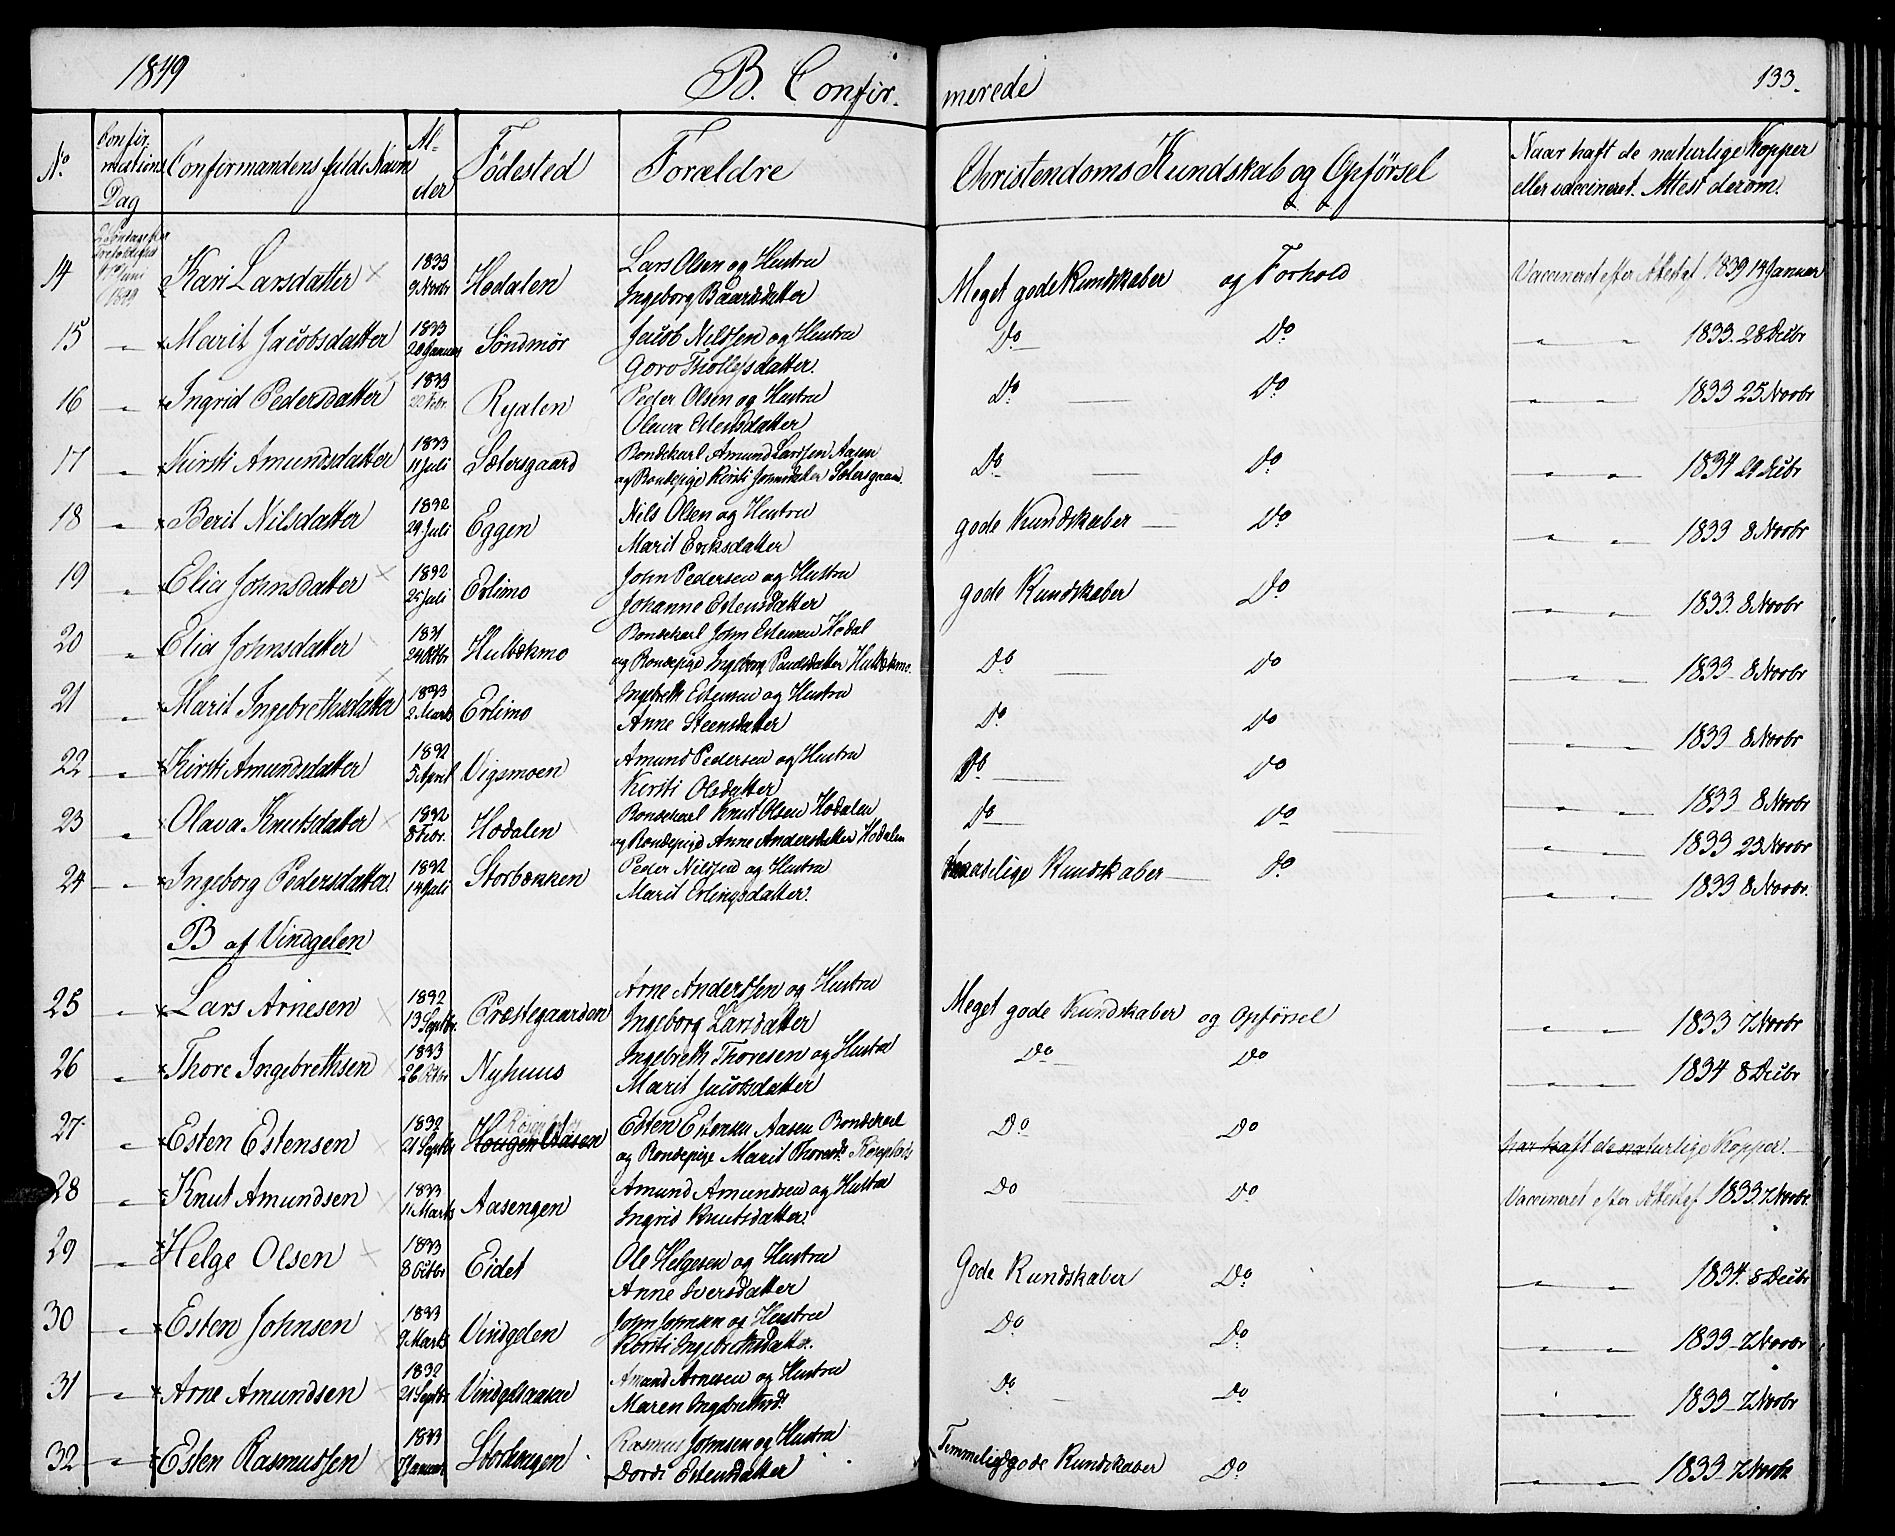 1849
B. Confir-
merede
133.
No
Confirmations Dag
Confirmandens fulde Navn
Alder
Fødested
Forældre
Christendoms Kundskab og Opførsel
Naar haft de naturlige Kopper
eller vaccineret. Attest derom.
14 Juni 1849 Kari Larsdatter 1833 9 Novbr Hodalen Lars Olsen og Hustru
Ingeborg Baardsdatter Meget gode Kundskaber og Forhold Vaccineret efter Attest 1839 14 Januar
15 " Marit Jacobsdatter 1833 28 Januar Søndmør Jacob Nilssen og Hustru
Goro Thollefsdatter. Do Do " " 1833. 28 Decbr
16 " Ingrid Pedersdatter 1833 Ryalen Peder Olsen og Hustru
Olava Estensdatter Do Do " " 1833 25 Novbr
17 " Kirsti Amundsdatter 1833 11 Juli Sætersgaard Bondekarl Amund Larssen Aasen
og Bondepige Kirsti Johnsdatter Sætersgaard. Do Do " " 1834 21 Decbr
18 " Berit Nilsdatter 1832 29 Juli Eggen Nils Olsen og Hustru
Marit Eriksdatter gode Kundskaber Do " " 1833 8 Novbr
19 " Elia Johnsdatter 1832 25 Juli Erlimo John Pedersen og Hustru
Johanne Estensdatter gode Kundskaber Do " " 1833. 8 Novbr
20 " Elia Johnsdatter 1831 24 Octbr Hulbækmo Bondekarl John Estensen Hodal
og Bondepige Ingeborg Paulsdatter Hulbækmo. Do Do " " 1833 8 Novbr
21 " Marit Ingebrethsdatter 1833 2 Marts Erlimo Ingebreth Estensen og Hustru
Anne Steensdatter Do Do " " 1833 8 Novbr
22 " Kirsti Amundsdatter 1832 5 April Vigsmoen Amund Pedersen og Hustru
Kirsti Olsdatter Do Do " " 1833 8 Novbr
23 " Olava Knutsdatter 1832 8 Febr. Hodalen Bondekarl Knut Olsen Hodalen
og Bondepige Anne Andersdatter Hodalen Do Do " " 1833 23 Novbr
24 " Ingeborg Pedersdatter. 1832 14 Juli Storbækken Peder Nilssen og Hustru
Marit Erlingsdatter. Kundskaber Do " " 1833 8 Novbr.
B af Vindgelen
25 " Lars Arnesen 1832 13 Septbr. Præstegaarden Arne Anderssen og Hustru
Ingeborg Larsdatter Meget gode Kundskaber og Opførsel " " 1833 7 Novbr
26 " Thore Ingebrethsen 1833 26 Octbr Nyhuus Ingebreth Thoresen og Hustru
Marit Jacobsdatter Do Do " " 1834 8 Decbr
27 " Esten Estensen 1832 21 Septbr Hougen Aasen Esten Estensen Aasen Bondekarl
og Bondepige Marit Thoresd. Do Do har haft de naturlige Kopper.
28 " Knut Amundsen 1833 11 Marts Aasengen Amund Amundsen og Hustru
Ingrid Knutsdatter. Do Do Vaccineret efter Attest 1833 7 Novbr
29 " Helge Olsen 1833 8 Octbr Eidet Ole Helgesen og Hustru
Anne Iversdatter Gode Kundskaber Do " " 1834. 8 Decbr
30 " Esten Johnsen 1833 9 Marts Vindgelen John Johnsen og Hustru
Kirsti Ingebrethsdatter. Do Do " " 1833 7 Novbr
31 " Arne Amundsen 1832 21 Septbr Vindgelsaasen Amund Arnesen og Hustru
Maren Ingebrethsd. Do Do " " 1833 7 Novbr
32 " Esten Rasmussen 1833 7 Januar Storhougen Rasmus Johnsen og Hustru
Dordi Estensdatter Temmelig gode Kundskaber Do " " 1833 7 Novbr